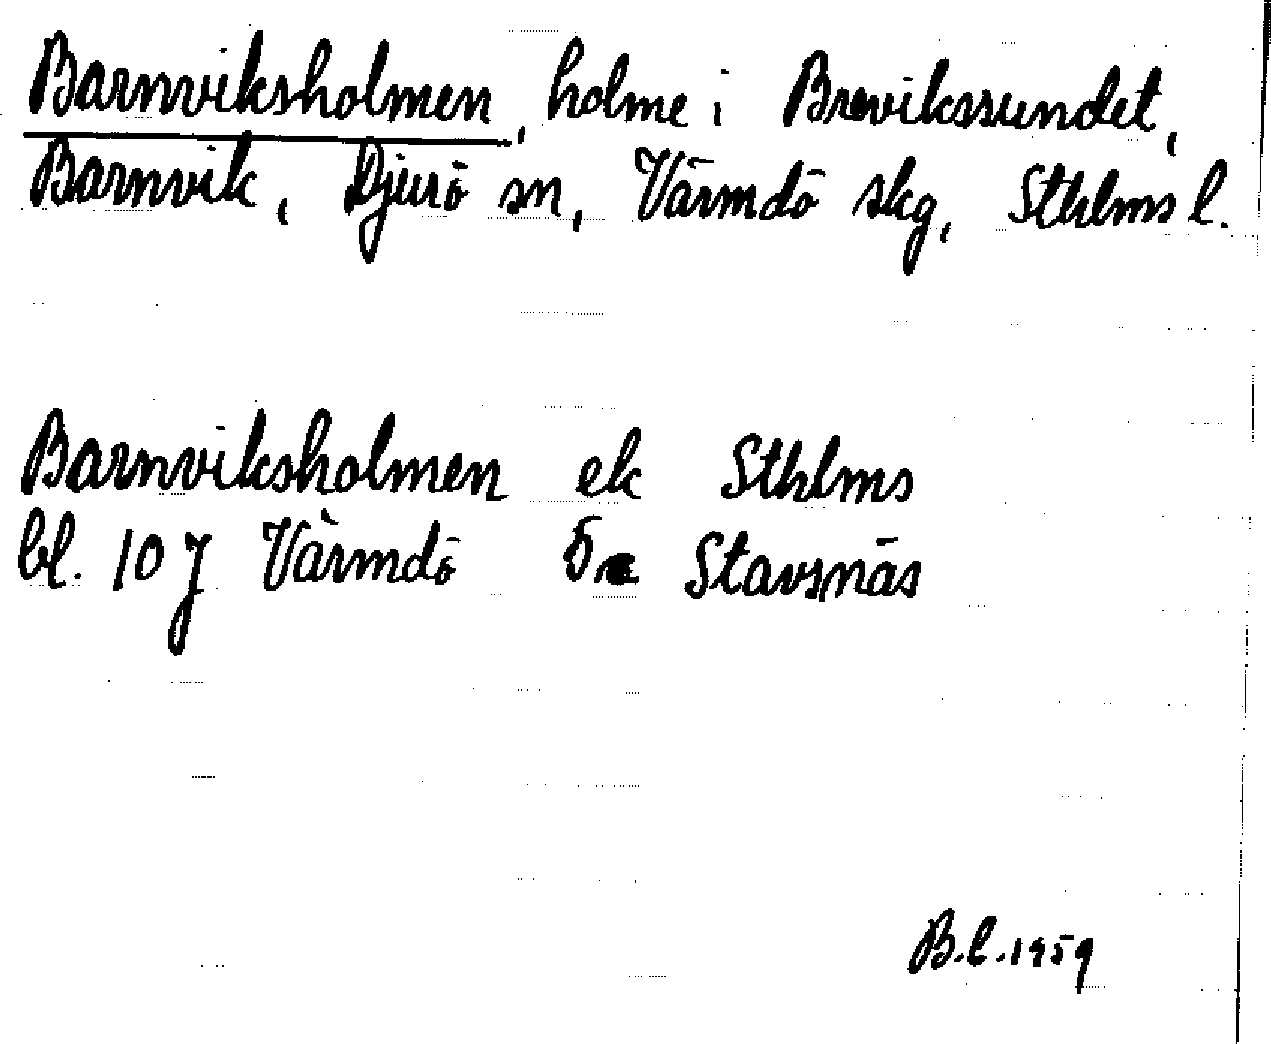 Barnviksholmen, holme i Brevikssundet,
Barnvik, Djurö sn, Värmdö skg, Sthlms l.
Barnviksholmen ek Sthlms
bl. 10 J Värmdö Stavsnäs
B.l. 1959